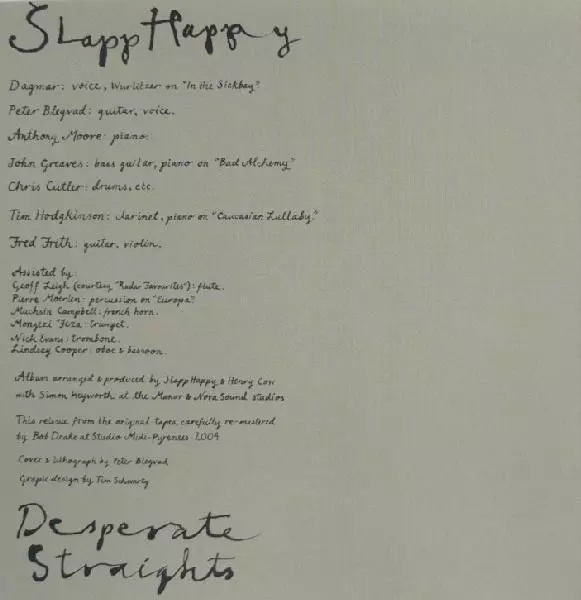 SLappHappy
Dagmar: voice, Wurlitzer on "In the Sickbay"
Peter Blegvad: guitar, voice.
Anthony Moore: piano.
John Greaves: bass guitar, piano on "Bad Alchemy"
Chris Cutler: drums, etc.
Tim Hodgkinson: clarinet, piano on "Caucasian Lullaby."
Fred Frith: guitar, violin.
Assisted by:
Geoff Leigh (courtesy "Radar Favourites"): flute.
Pierre Moerlen: percussion on "Europa"
Muchsin Campbell: french horn.
Mongezi Feza: trumpet.
Nick Evans: trombone.
Lindsay Cooper: oboe & bassoon.
Album arranged & produced by Slapp Happy & Henry Cow
with Simon Heyworth at the Manor & Nova Sound studios
This release from the original tapes, carefully re-mastered
by Bob Drake at Studio Midi-Pyrenees 2004
Cover & lithograph by Peter Blegvad
Grapic design by Tim Schwartz
Desperate
Straights